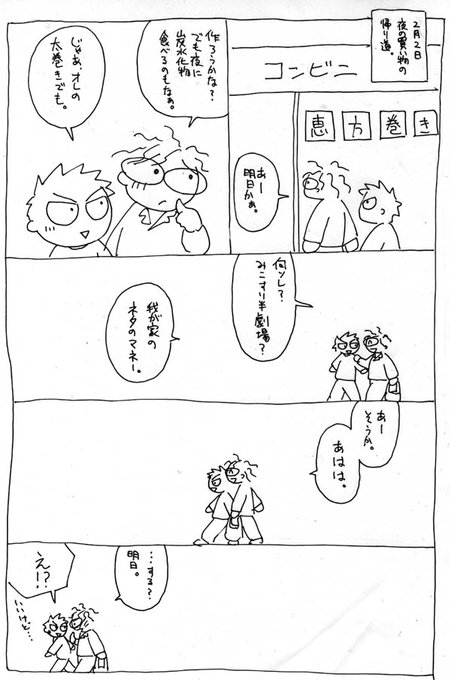 2月2日
夜の買い物の
帰り道。
コンビニ
恵方巻き
あー
明日かぁ。
作ろうかな?
でも夜に
炭水化物
食べるのもなぁ。
じゃあ、オレの
太巻きでも。
何ソレ?
みこすり半劇場?
我が家の
ネタのマネー。
あー
そうか。
あはは。
…する?
明日。
え!?
いいけど…